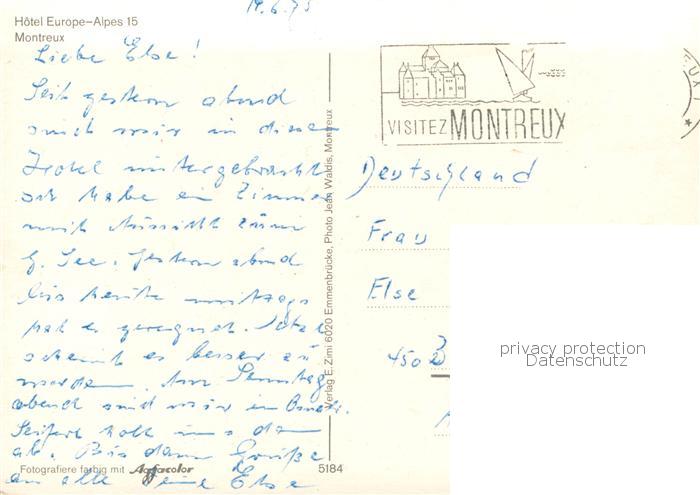 19.6.75
Hôtel Europe-Alpes 15
Montreux
Liebe Else!
Seit gestern abend
sind wir in diesem
Hotel untergebracht
Ich habe ein Zimmer
mit Aussicht zum
G. See. Gestern abend
bis heute mittags
hat es geregnet. Jetzt
scheint es besser zu
werden. Am Sonntag
abend sind wir in
Seifert holt uns da
ab. Bis dann Grüße
an alle Deine Else
Fotografiere farbig mit Agfacolor
5184
Verlag E. Zimi 6020 Emmenbrücke, Photo Jean Waldis, Montreux
VISITEZ MONTREUX
Deutschland
Frau
Else
450
privacy protection
Datenschutz